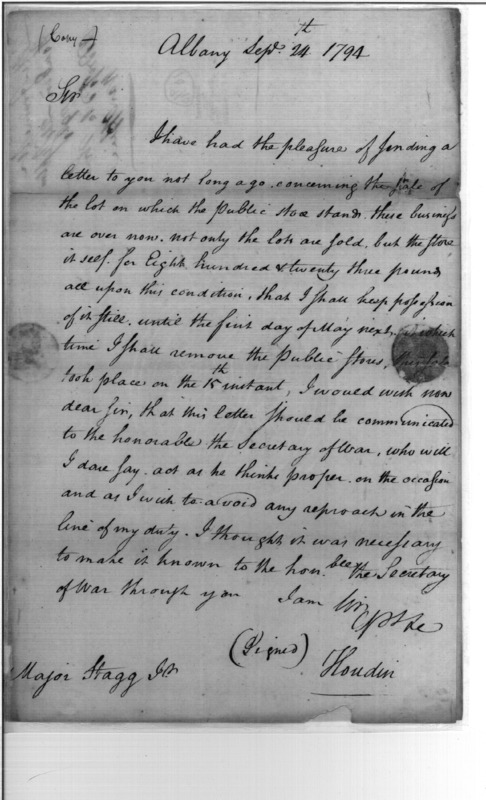 (Copy)
Albany Sepr. 24th 1794
Sir
I have had the pleasure of sending a
letter to you not long ago. concerning the sale of
the lot on which the public store stands. these business
are over now. not only the lots are sold, but the store
it self. for Eight hundred & twenty three pounds
all upon this condition, that I shall keep possession
of it still. until the first day of May next, at which
time I shall remove the Public Stores, the sale
took place on the 15th instant, I would wish now
dear Sir, that this letter should be communicated
to the honorable the Secretary of War, who will
I dare say. act as he thinks proper. on the occasion
and as I wish to avoid any reproach in the
line of my duty. I thought it was necessary
to make it known to the hon.ble the Secretary
of War through you I am Sir
(Signed)
Houdin
Major Stagg Jr